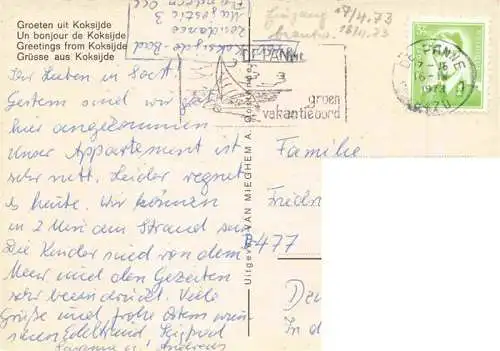 Groeten uit Koksijde
Un bonjour de Koksijde
Greetings from Koksijde
Grüsse aus Koksijde
Ihr Lieben in Soest.
Gestern sind wir gut
hier angekommen
Unser Appartement ist
sehr nett. Leider regnet
es heute. Wir können
in 2 Min am Strand sein
Die Kinder sind von dem
Meer und den Gezeiten
sehr beeindruckt. Viele
Grüße und frohe Ostern
Edeltraud Siegfried
Susanne u. Andreas
Uitgeverij VAN MIEGHEM A. Oostende
Koksijde-Bad
Residence
Majestic 3
Eingang 17/4.73
16/4.73
DE PANNE
groen
vakantieoord
DE PANNE
16-IV
1973
8470
Familie
Friedr
4477
In d